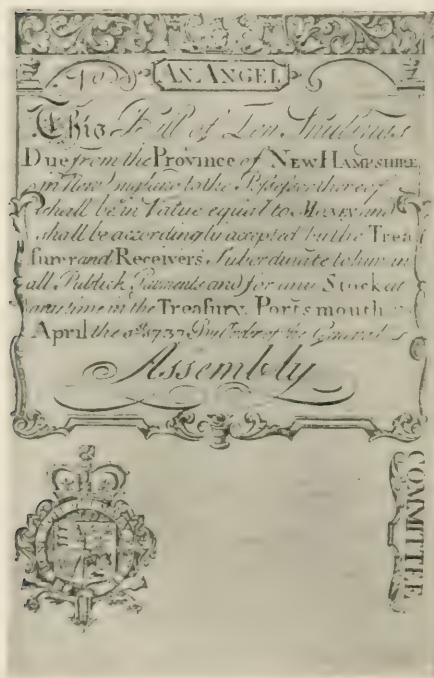 AN ANGEL
This Bill of Ten Shillings
Due from the Province of NEW HAMPSHIRE
in New England to the Possessor thereof
shall be in Value equal to MONEY and
shall be accordingly accepted by the Trea
surer and Receivers Subordinate to him in
all Publick Payments and for any Stock at
any time in the Treasury. Portsmouth
April the 1737 By Order of the General
Assembly
COMMITTEE